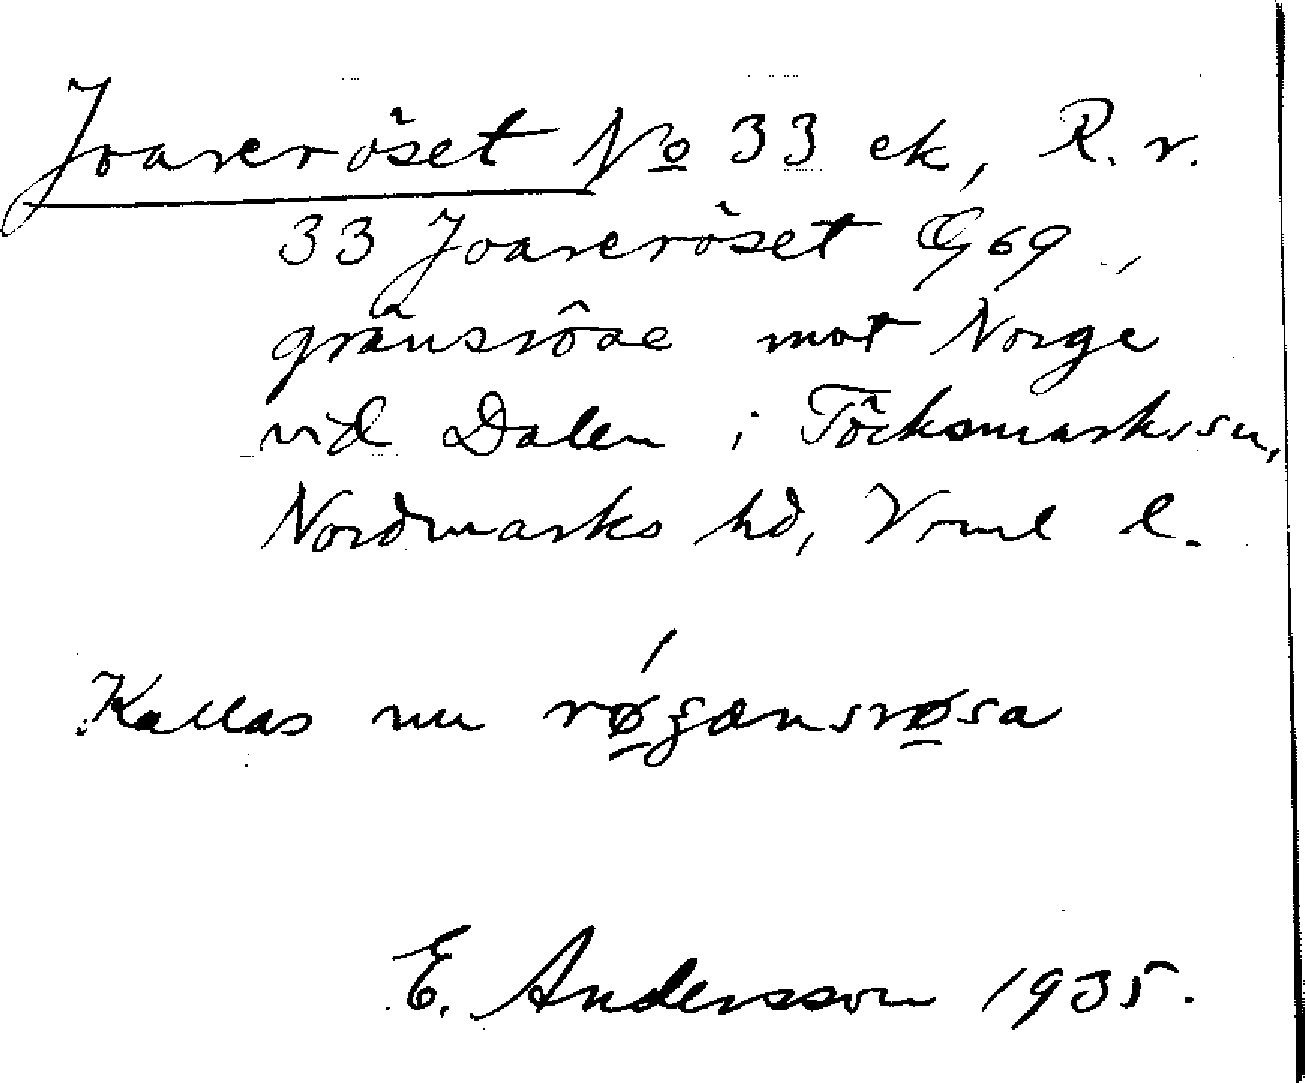 Joareröset No 33 ek, R. v.
33 Joareröset G 69,
gränsröse mot Norge
vid Dalen i Töcksmarks sn,
Nordmarks hd, Vrml l.
Kallas nu røgænsrøsa
E. Andersson 1935.